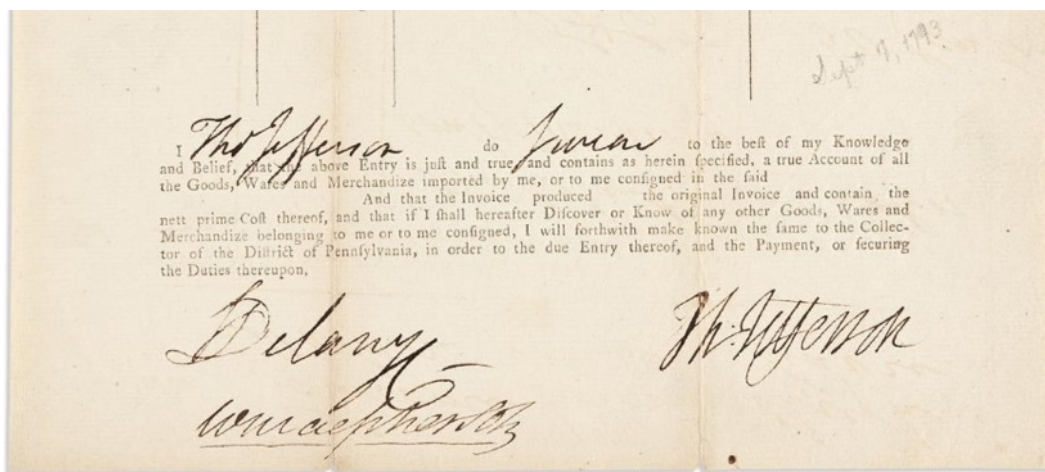 Sept 7, 1793
I Tho Jefferson do swear to the beſt of my Knowledge
and Belief, that the above Entry is juſt and true, and contains as herein ſpecified, a true Account of all
the Goods, Wares and Merchandize imported by me, or to me conſigned in the ſaid
And that the Invoice produced the original Invoice and contain the
nett prime Coſt thereof, and that if I ſhall hereafter Diſcover or Know of any other Goods, Wares and
Merchandize belonging to me or to me conſigned, I will forthwith make known the ſame to the Collec-
tor of the Diſtrict of Pennſylvania, in order to the due Entry thereof, and the Payment, or ſecuring
the Duties thereupon.
Delany
Th. Jefferson
Wm Macpherson